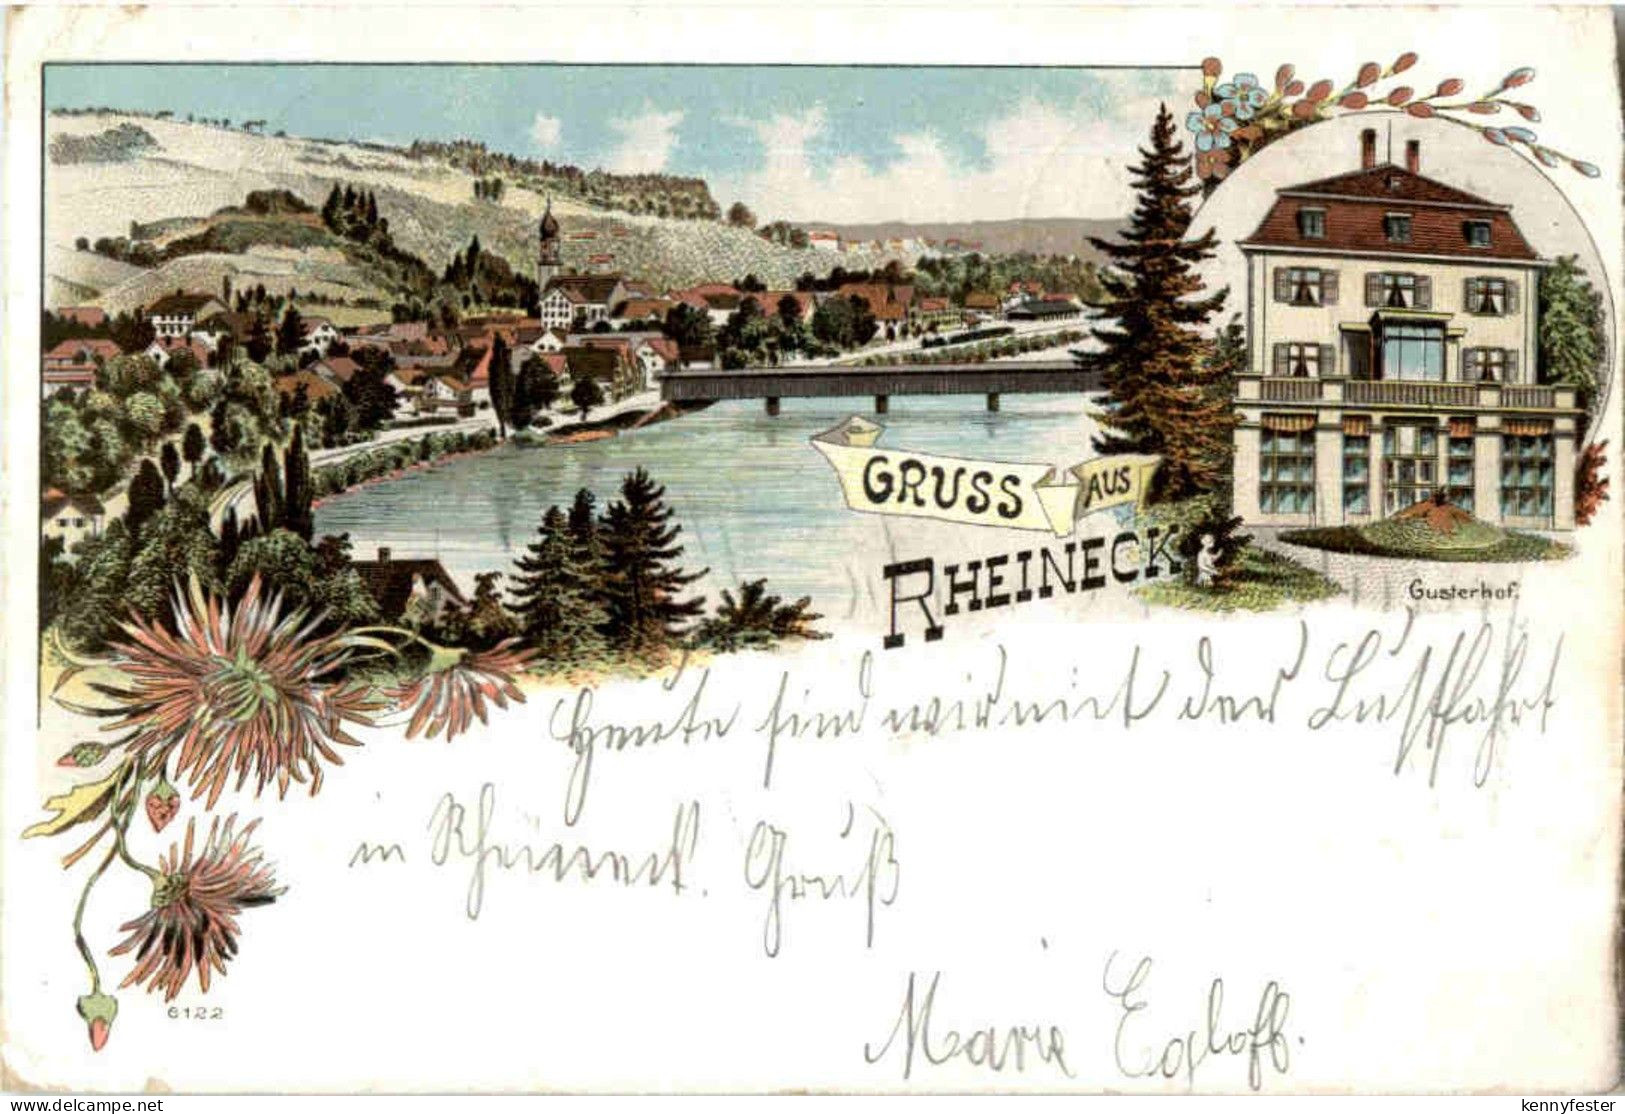 GRUSS AUS
RHEINECK
Gusterhof.
Heute sind wir mit der Lustfahrt
in Rheineck. Gruß
Marie Egloff.
6122
delcampe.net
kennyfester